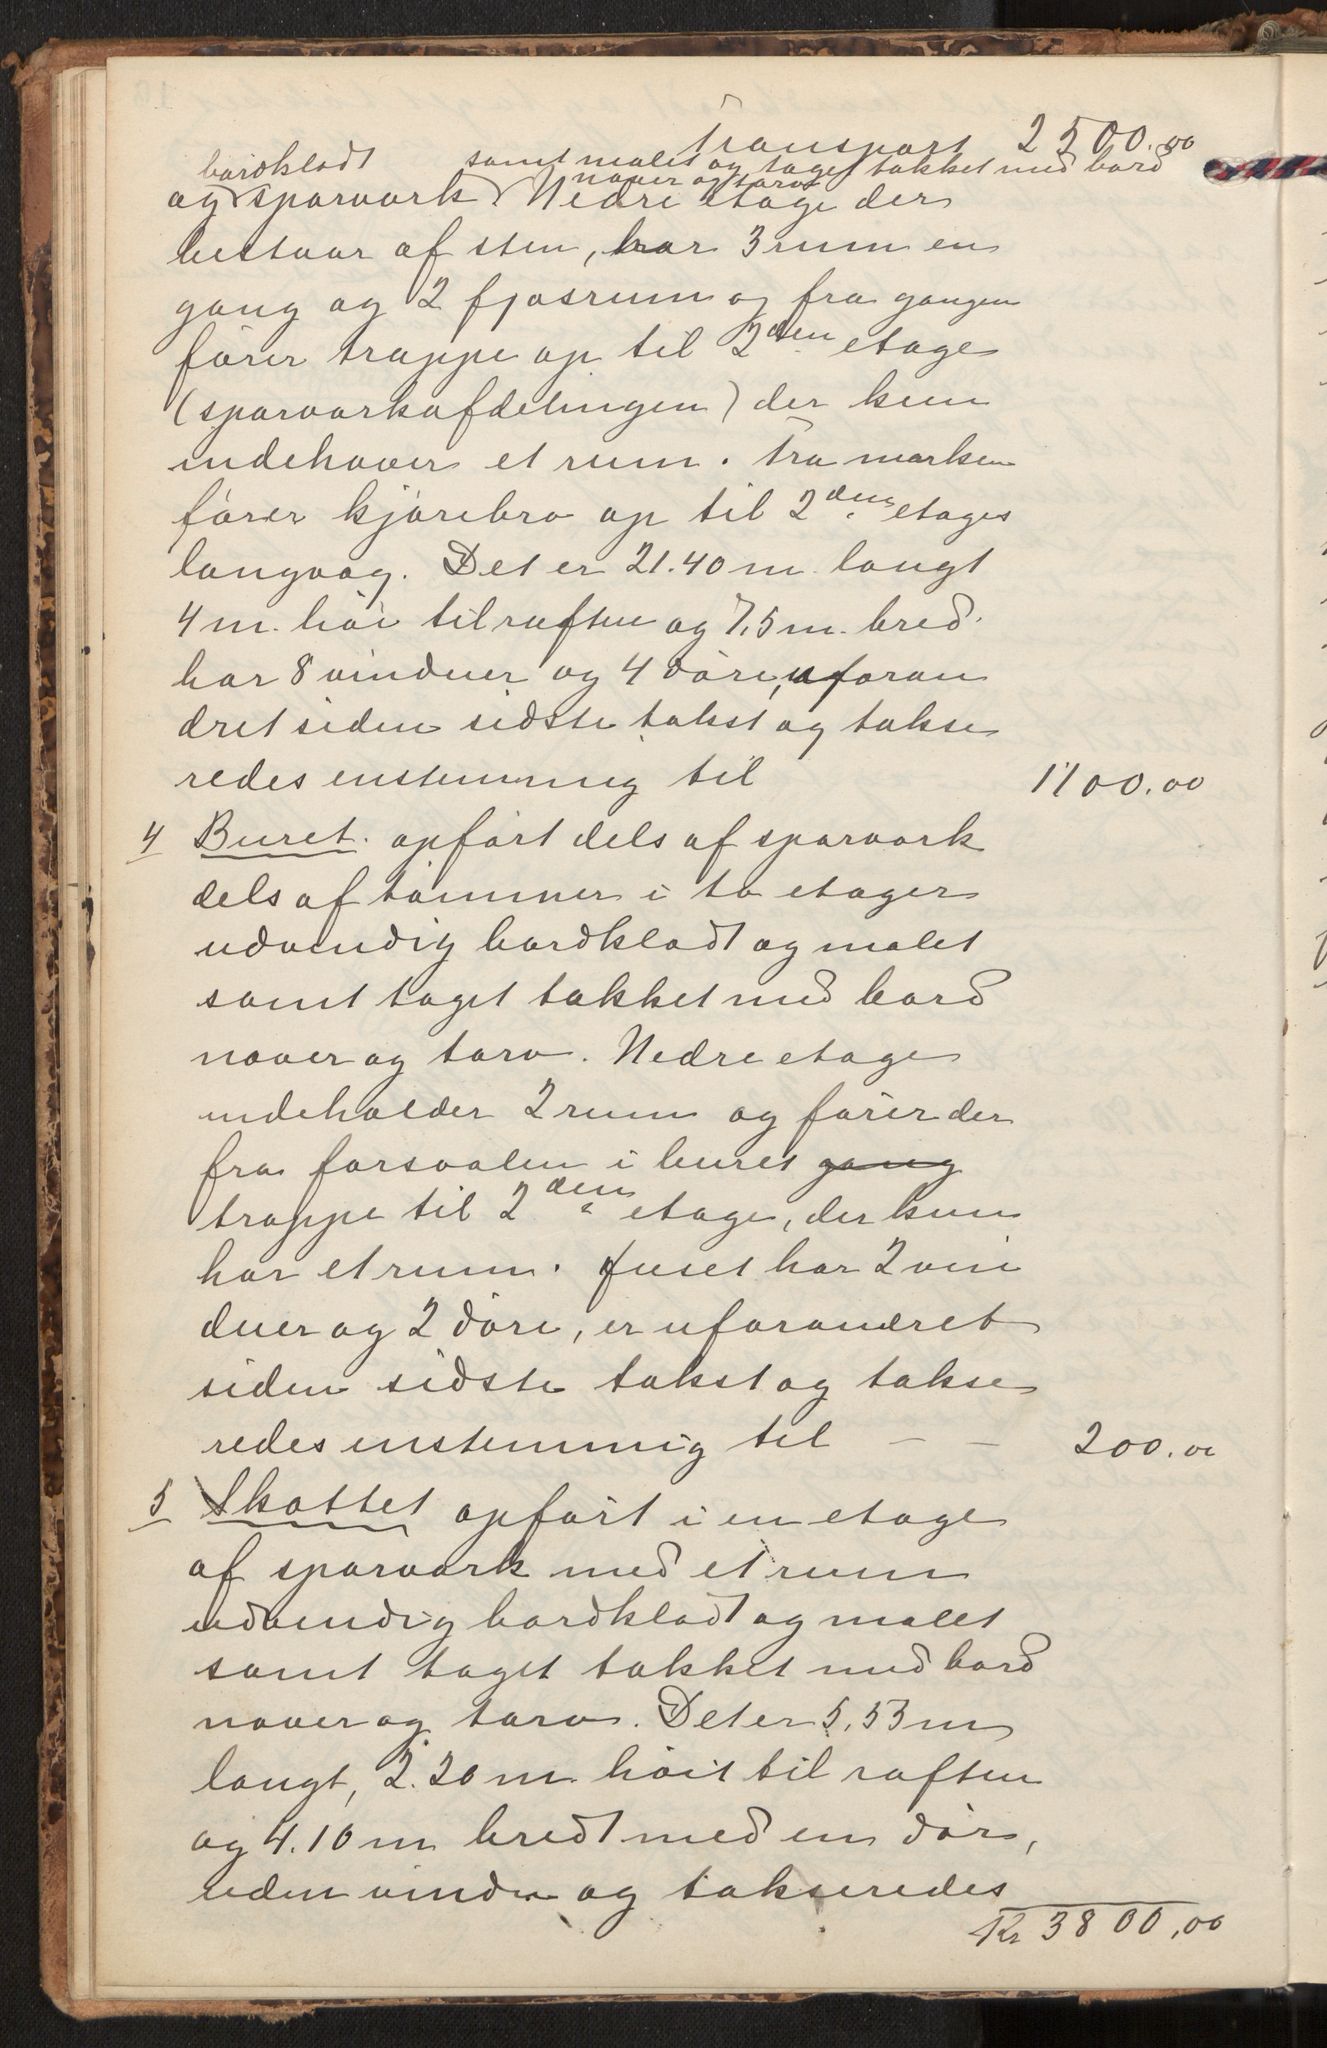 Transport 2500.00
bordklædt samt malet og taget tækket med bord
næver og torv
og sparværk Nedre etage der
bestaar af sten, har 3 rum en
gang og 2 fjøsrum og fra gangen
fører trappe op til 2den etage
(sparværkafdelingen) der kun
indehaver et rum. Fra marken
fører kjørebro op til 2den etages
langvæg. Det er 21.40 m langt
4 m. høi til raften og 7,5 m. bred.
har 8 vinduer og 4 døre, uforan
dret siden sidste takst og takse
redes enstemmig til 1100.00
4 Buret. opført dels af sparværk
dels af tømmer i to etager
udvendig bordklædt og malet
samt taget tækket med bord
næver og torv. Nedre etage
indeholder 2 rum og fører der
fra forsvalen i buret gang
trappe til 2den etage, der kun
har et rum. Huset har 2 vin
duer og 2 døre, er uforandret
siden sidste takst og takse
redes enstemmig til — — 200.00
5 Skottet opført i en etage
af sparværk med et rum
udvendig bordklædt og malet
samt taget tækket med bord
næver og torv. Det er 5,53 m
langt, 2.20 m høit til raften
og 4.10 m bredt med en dør,
uden vindu og takseredes
Kr 3800,00